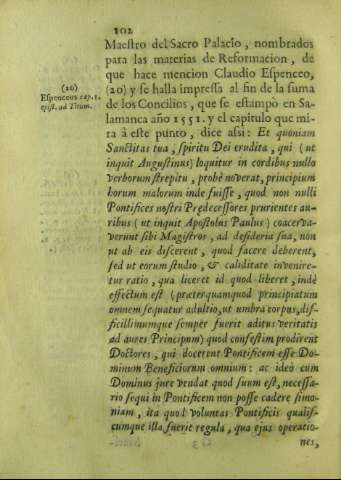 102
Maestro del Sacro Palacio, nombrados
para las materias de Reformacion, de
que hace mencion Claudio Espenceo,
(20) y se halla impressa al fin de la suma
de los Concilios, que se estampò en Sa-
lamanca año 1551. y el capitulo que mi-
ra à este punto, dice assi: Et quoniam
Sanctitas tua, spiritu Dei erudita, qui (ut
inquit Augustinus) loquitur in cordibus nullo
verborum strepitu, probè noverat, principium
horum malorum inde fuisse, quod non nulli
Pontifices nostri Predecessores prurientes au-
ribus (ut inquit Apostolus Paulus) coacerva-
verunt sibi Magistros, ad desideria sua, non
ut ab eis discerent, quod facere deberent,
sed ut eorum studio, & caliditate invenire-
tur ratio, qua liceret id quod liberet, indè
effectum est (præterquamquod principiatum
omnem sequatur adultio, ut umbra corpus, dif-
ficillimumque semper fuerit aditus veritatis
ad aures Principum) quod confestim prodirent
Doctores, qui docerent Pontificem esse Do-
minum Beneficiorum omnium: ac ideò cum
Dominus jure vendat quod suum est, necessa-
rio sequi in Pontificem non posse cadere simo-
niam, ita quod voluntas Pontificis qualis-
cumque illa fuerit regula, qua ejus operatio-
nes,
(20)
Espenceos cap. 1.
epist. ad Titum.